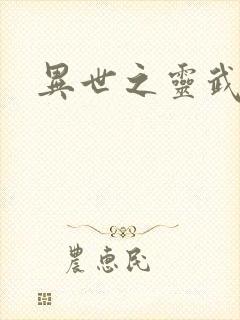 異世之靈武
農惠民